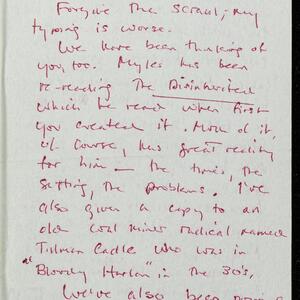 Forgive the scrawl; my
typing is worse.
We have been thinking of
you, too. Myles has been
re-reading The Disinherited
which he read when first
you created it. Most of it,
of course, has great reality
for him — the times, the
setting, the problems. I've
also given a copy to an
old coal miner radical named
Tillman Cadle who was in
"Bloody Harlan" in the 30's.
We've also been